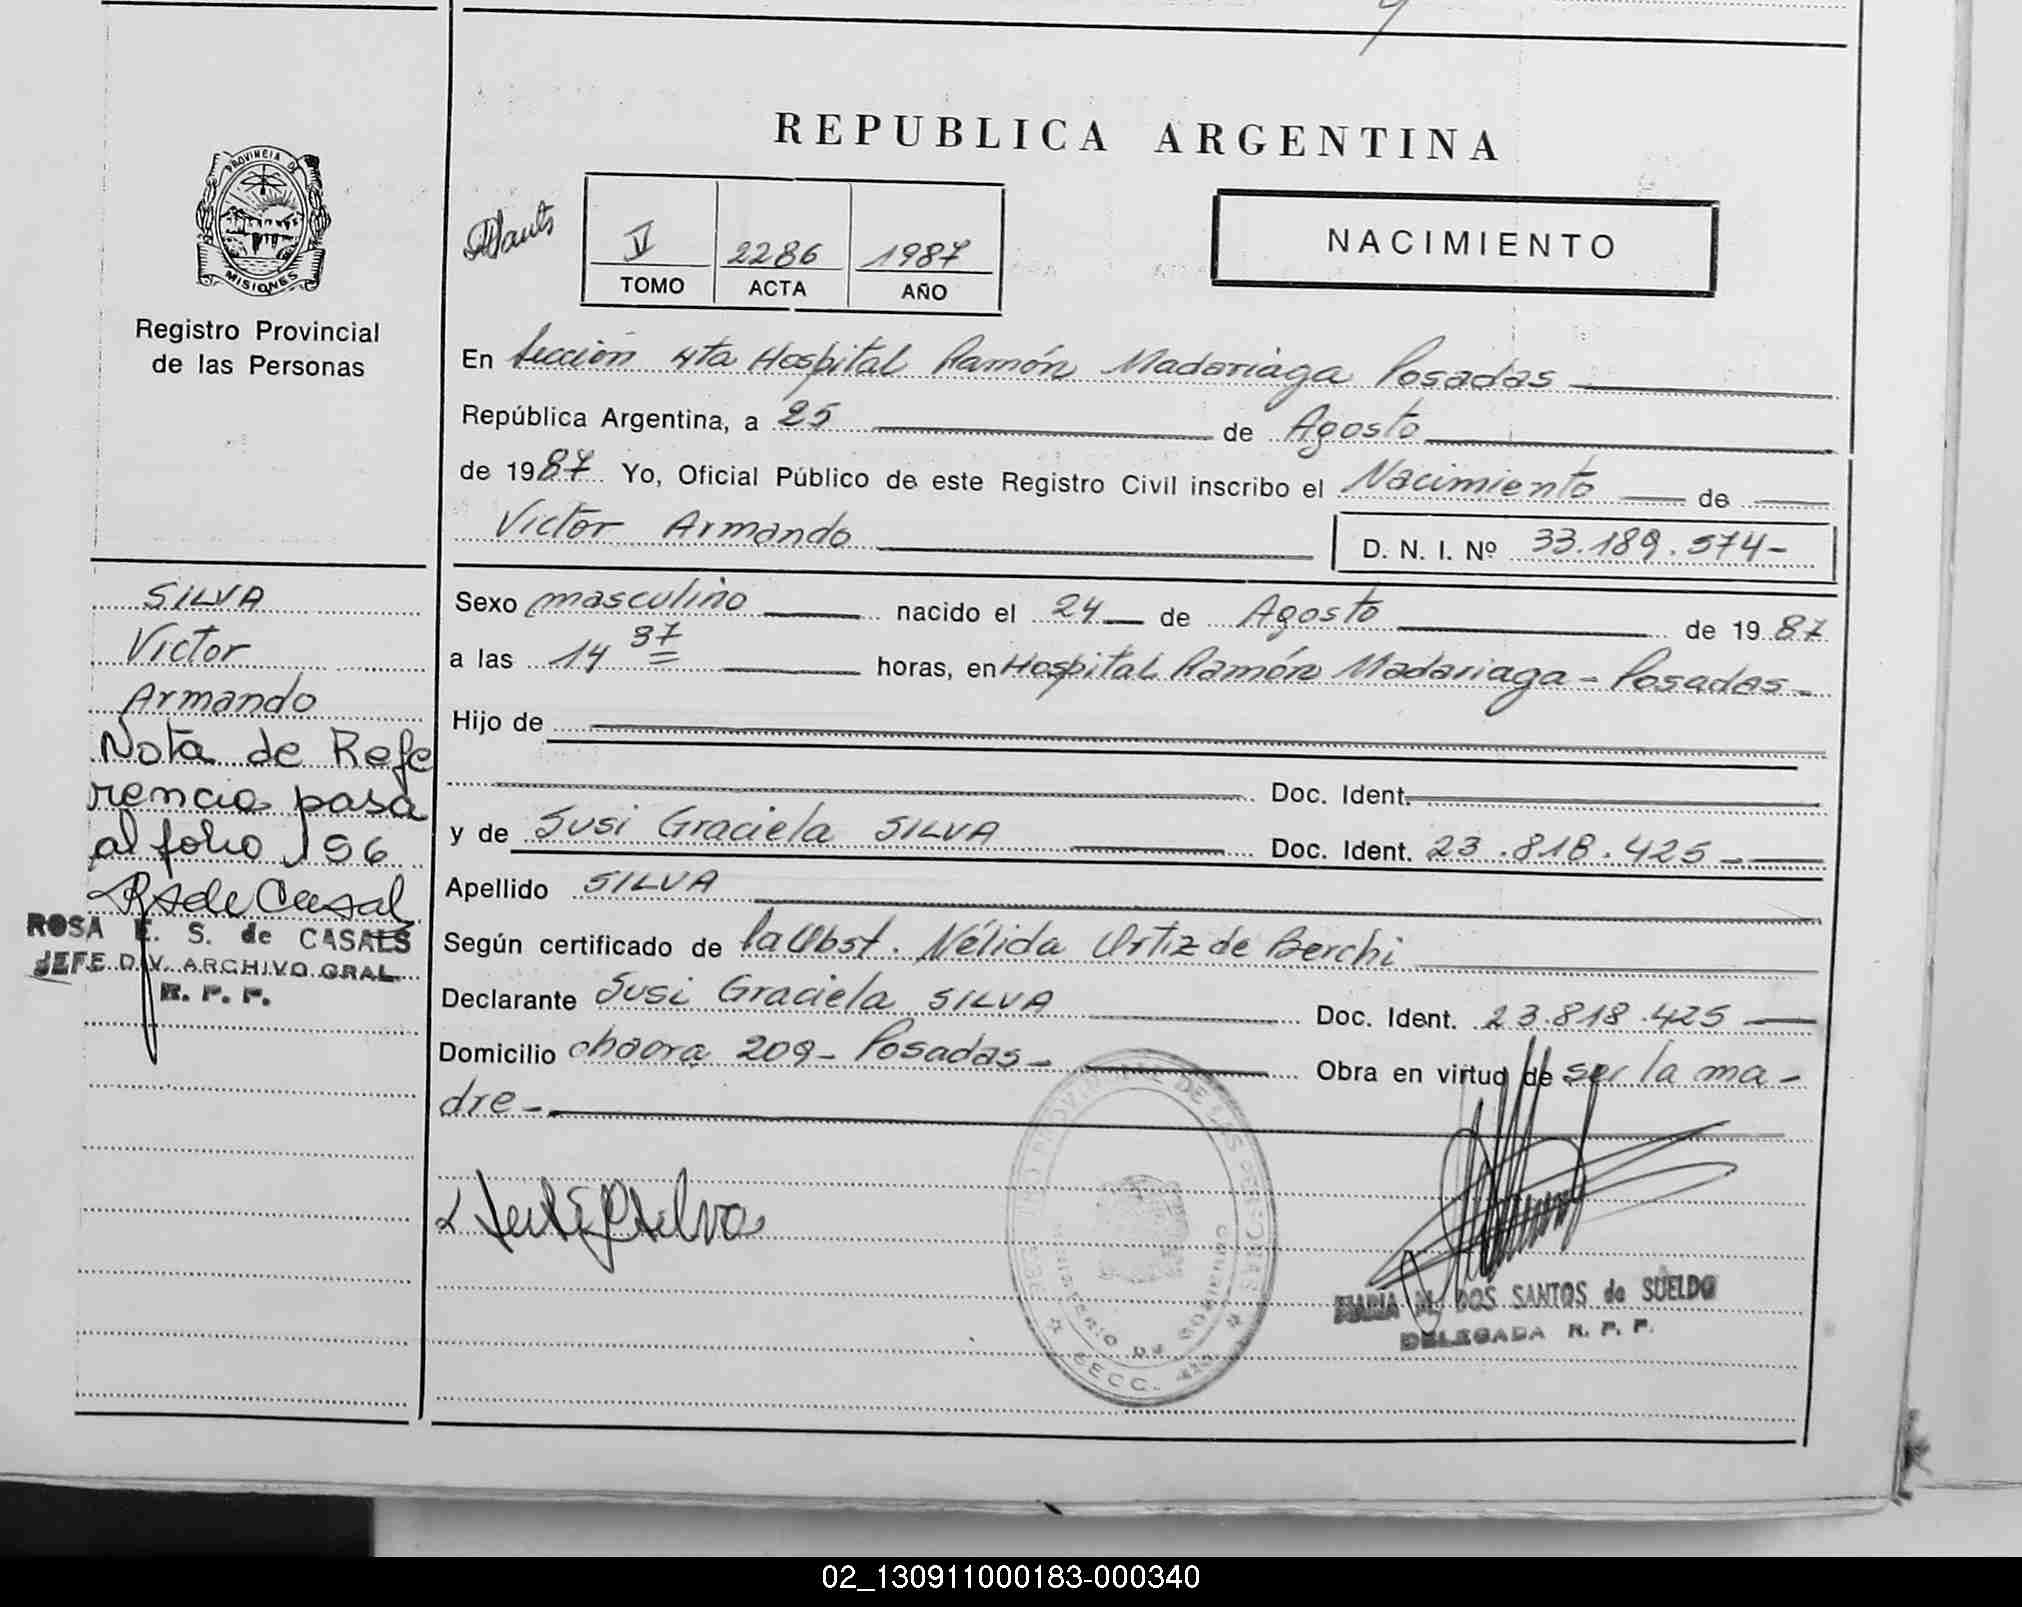 REPUBLICA ARGENTINA
PROVINCIA DE
MISIONES
Registro Provincial
de las Personas
V 2286 1987
TOMO ACTA AÑO
NACIMIENTO
En Sección 4ta Hospital Ramón Madariaga Posadas
República Argentina, a 25 de Agosto
de 1987 Yo, Oficial Público de este Registro Civil inscribo el Nacimiento de
Victor Armando D. N. I. Nº 33.189.574-
SILVA
Victor
Armando
Nota de Refe
rencia pasa
al folio 196
ROSA E. S. de CASALS
JEFE DIV. ARCHIVO GRAL.
R. P. P.
Sexo masculino nacido el 24 de Agosto de 1987
a las 14 37 horas, en Hospital Ramón Madariaga - Posadas -
Hijo de
Doc. Ident.
y de Susi Graciela SILVA Doc. Ident. 23.818.425 -
Apellido SILVA
Según certificado de la Obst. Nélida Ortiz de Berchi
Declarante Susi Graciela SILVA Doc. Ident. 23.818.425
Domicilio chacra 209 - Posadas - Obra en virtud de ser la ma-
dre -
PROVINCIAL DE LAS PERSONAS
MINISTERIO DE GOBIERNO
SECC. 4ta
MARIA M. DOS SANTOS de SUELDO
DELEGADA R. P. P.
02_130911000183-000340